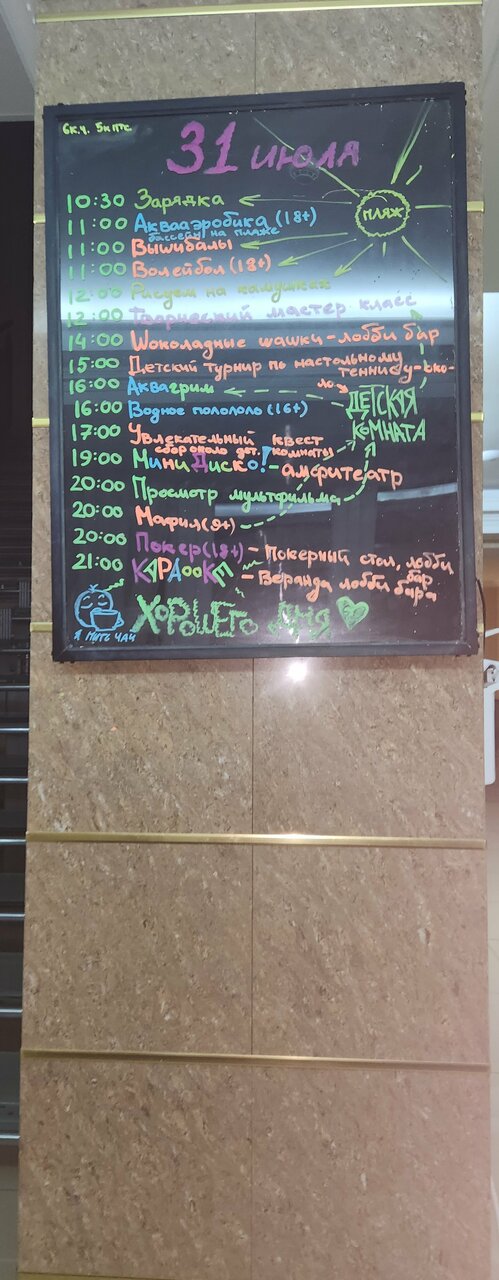 31 июля
ПЛЯЖ
10:30 Зарядка
11:00 Аквааэробика (18+)
бассейн на пляже
11:00 Вышибалы
11:00 Волейбол (18+)
12:00 Рисуем на камушках
12:00 Творческий мастер класс
14:00 Шоколадные шашки - лобби бар
15:00 Детский турнир по настольному
теннису-око-
ло
16:00 Аквагрим
ДЕТСКАЯ
КОМНАТА
16:00 Водное полололо (16+)
17:00 Увлекательный квест
сбор около дет. комнаты
19:00 Мини Диско! - амфитеатр
20:00 Просмотр мультфильма
20:00 Мафия (9+)
20:00 Покер (18+) - Покерный стол, лобби
бар
21:00 КАРАооКЕ - Веранда лобби бара
ХОРОШЕГО ДНЯ
Я ПИТЬ ЧАЙ